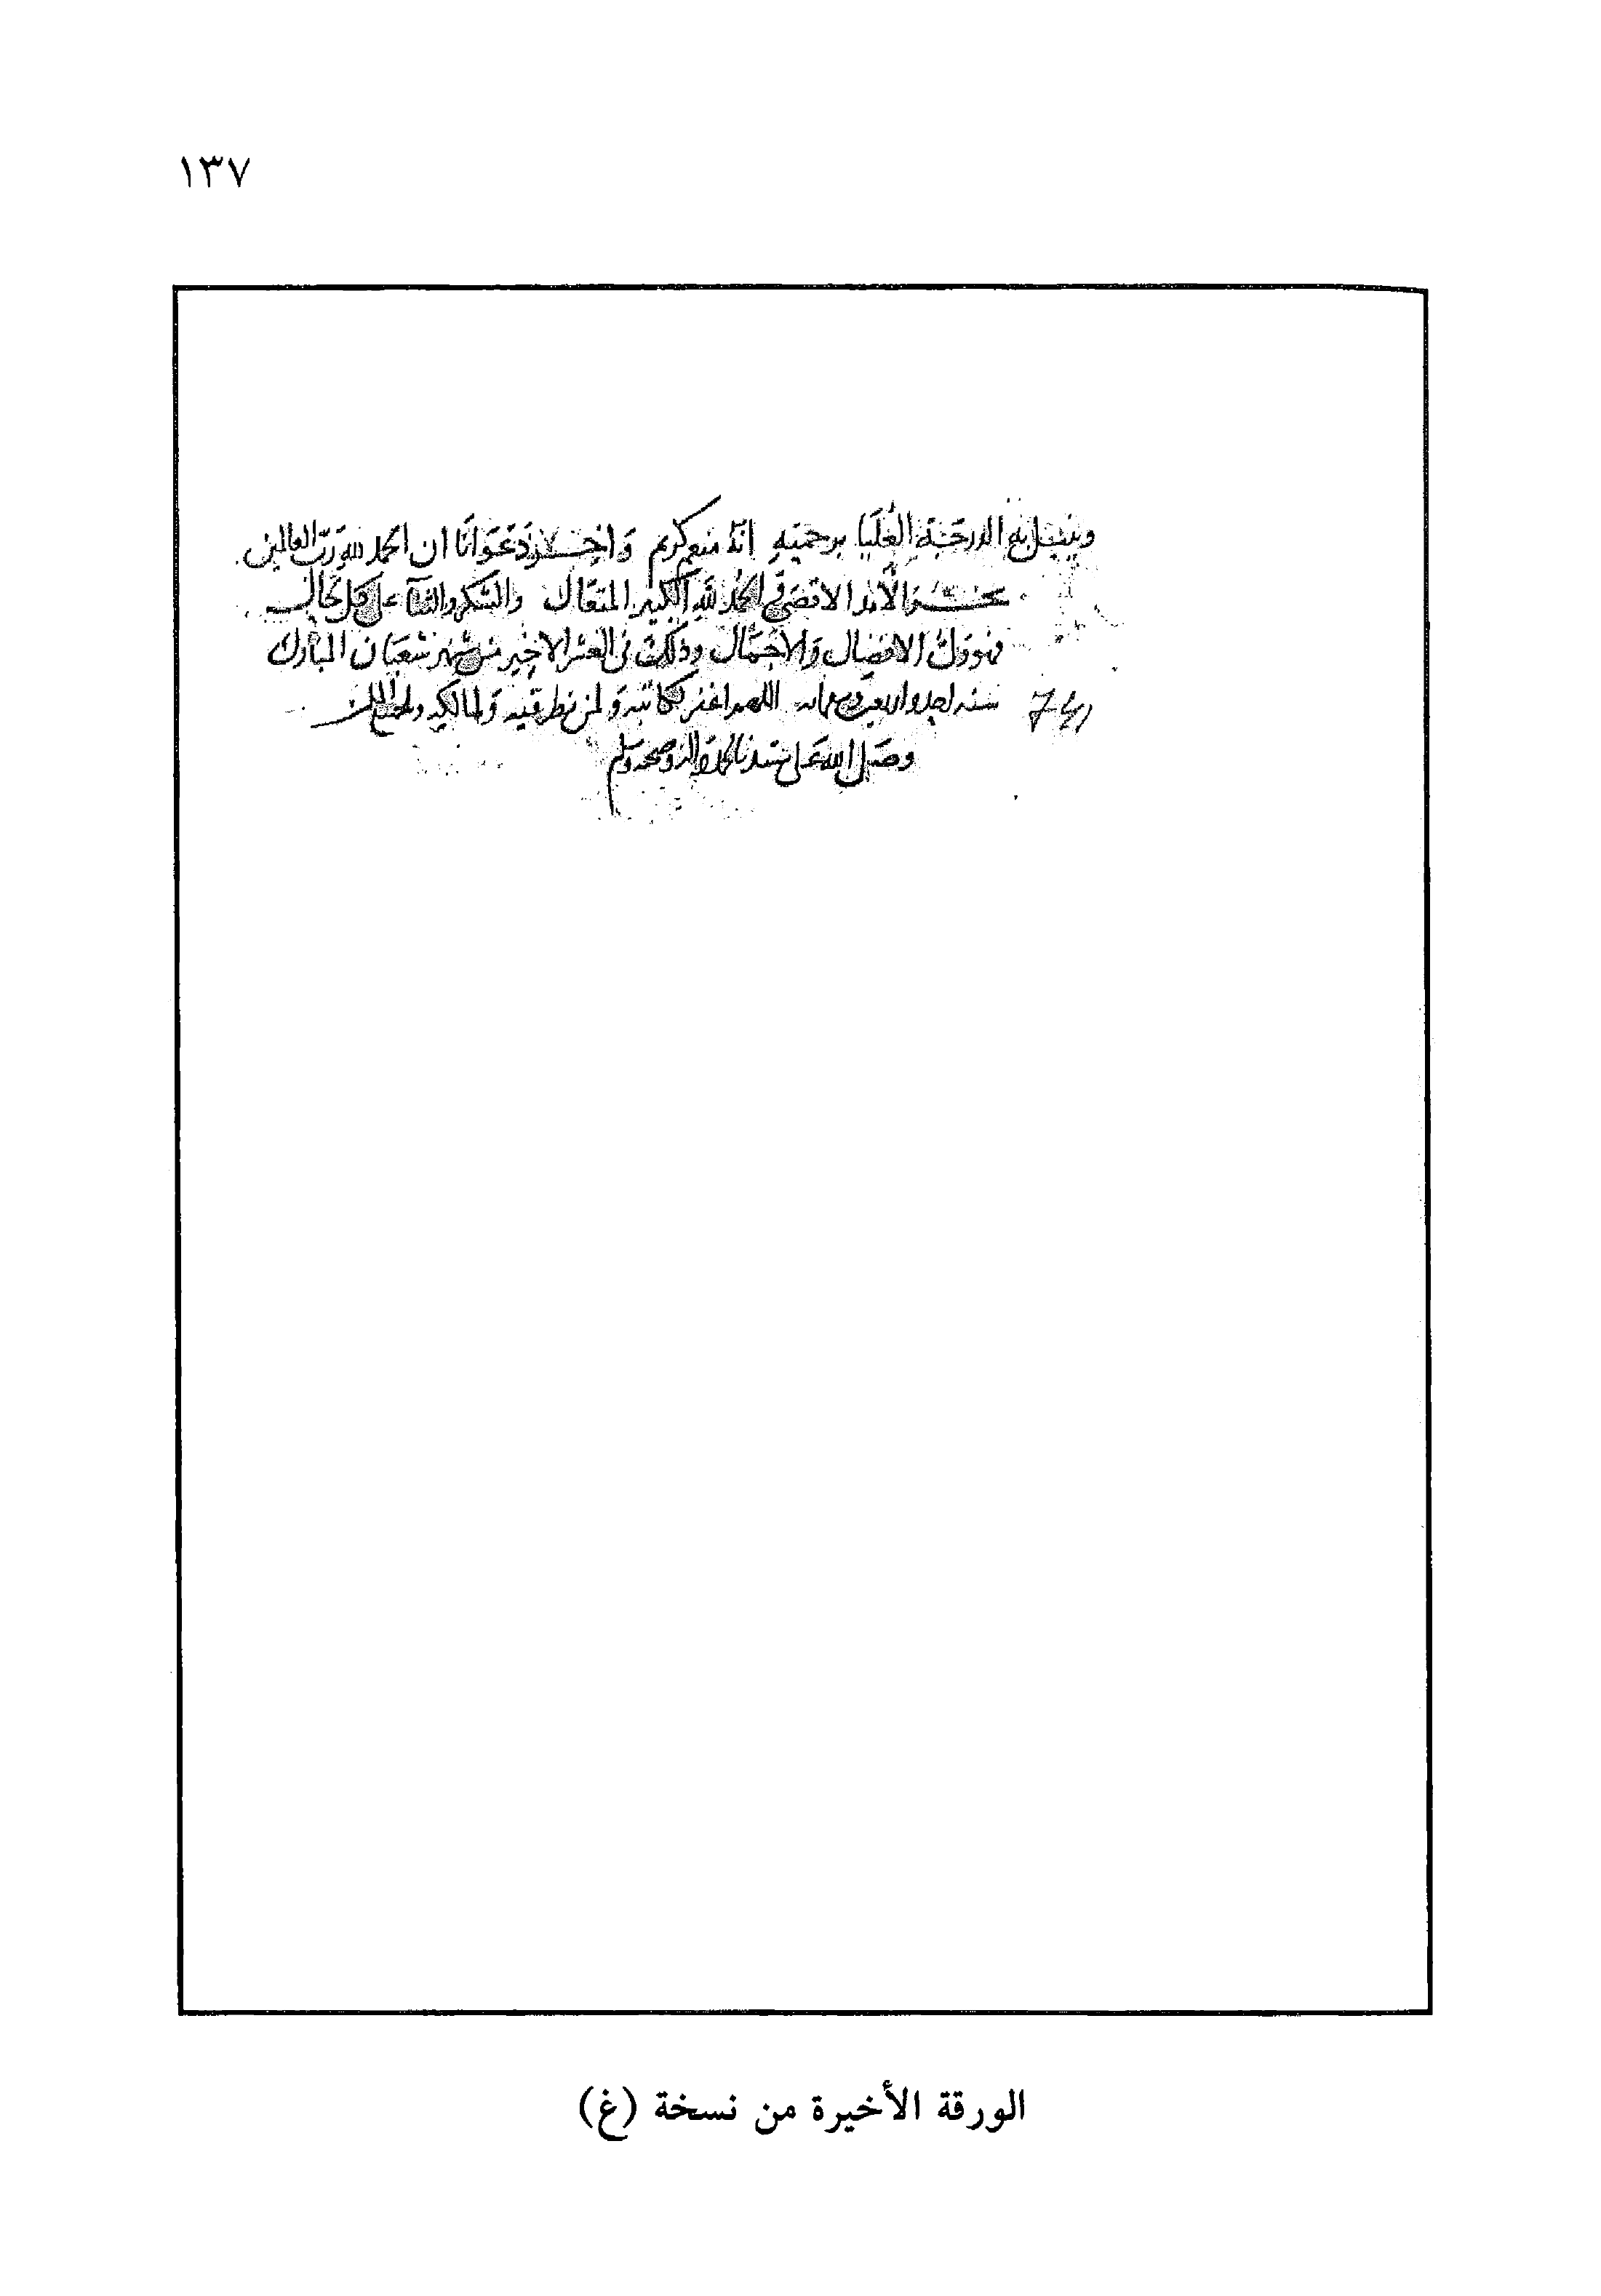 ١٣٧
وينيل به الدرجة العليا برحمته انه منعم كريم واخر دعوانا ان الحمد لله رب العالمين
الاقصى الحمد لله الكبير المتعال والشكر والثنآ على كل حال
فهو ولى الافضال والاجمال وذلك فى العشر الاخير من شهر شعبان المبارك
741 سنه احد واربعين وسبعمايه اللهم اغفر لكاتبه ولمن نظر فيه ولمالكه ولجميع
وصلى الله على سيدنا محمد واله وصحبه وسلم
الورقة الأخيرة من نسخة (غ)